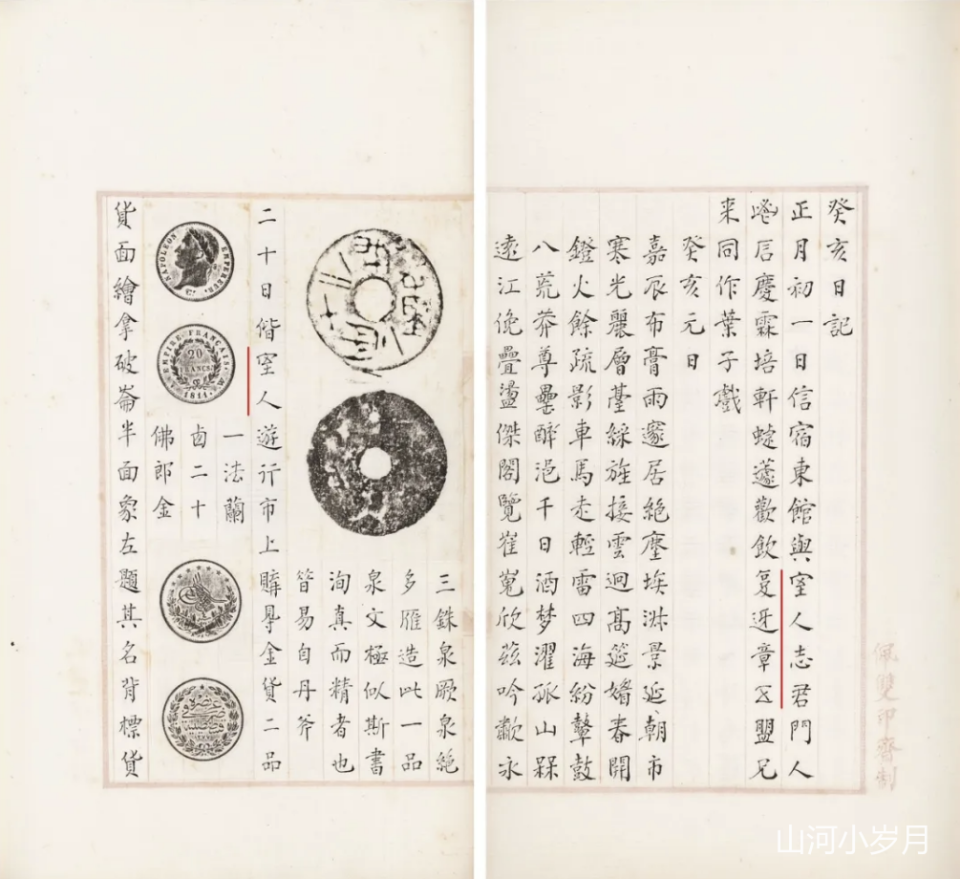 癸亥日記
正月初一日信宿東館與室人志君門人
后慶霖培軒蜨蘧歡飲复迓章五盟兄
来同作葉子戲
癸亥元日
嘉辰布膏雨邃居絶塵埃淋景延朝市
寒光麗層臺綵旌接雲迥高筵媎春開
鐙火餘疏影車馬走輕雷四海紛鼙鼓
八荒莽尊罍醉浥千日酒梦濯孤山槑
遠江俛疊盪傑閣覽崔嵬欣茲吟歡永
佩雙印齋制
三銖泉厥泉絶
多雁造此一品
泉文極似斯書
洵真而精者也
易自丹斧
二十日偕室人遊行市上購㝵金貨二品
一法蘭
卣二十
佛郎金
NAPOLEON EMPEREUR
EMPIRE FRANCAIS
20
FRANCS
1811
貨面繪拿破崙半面象左題其名背標貨
山河小岁月